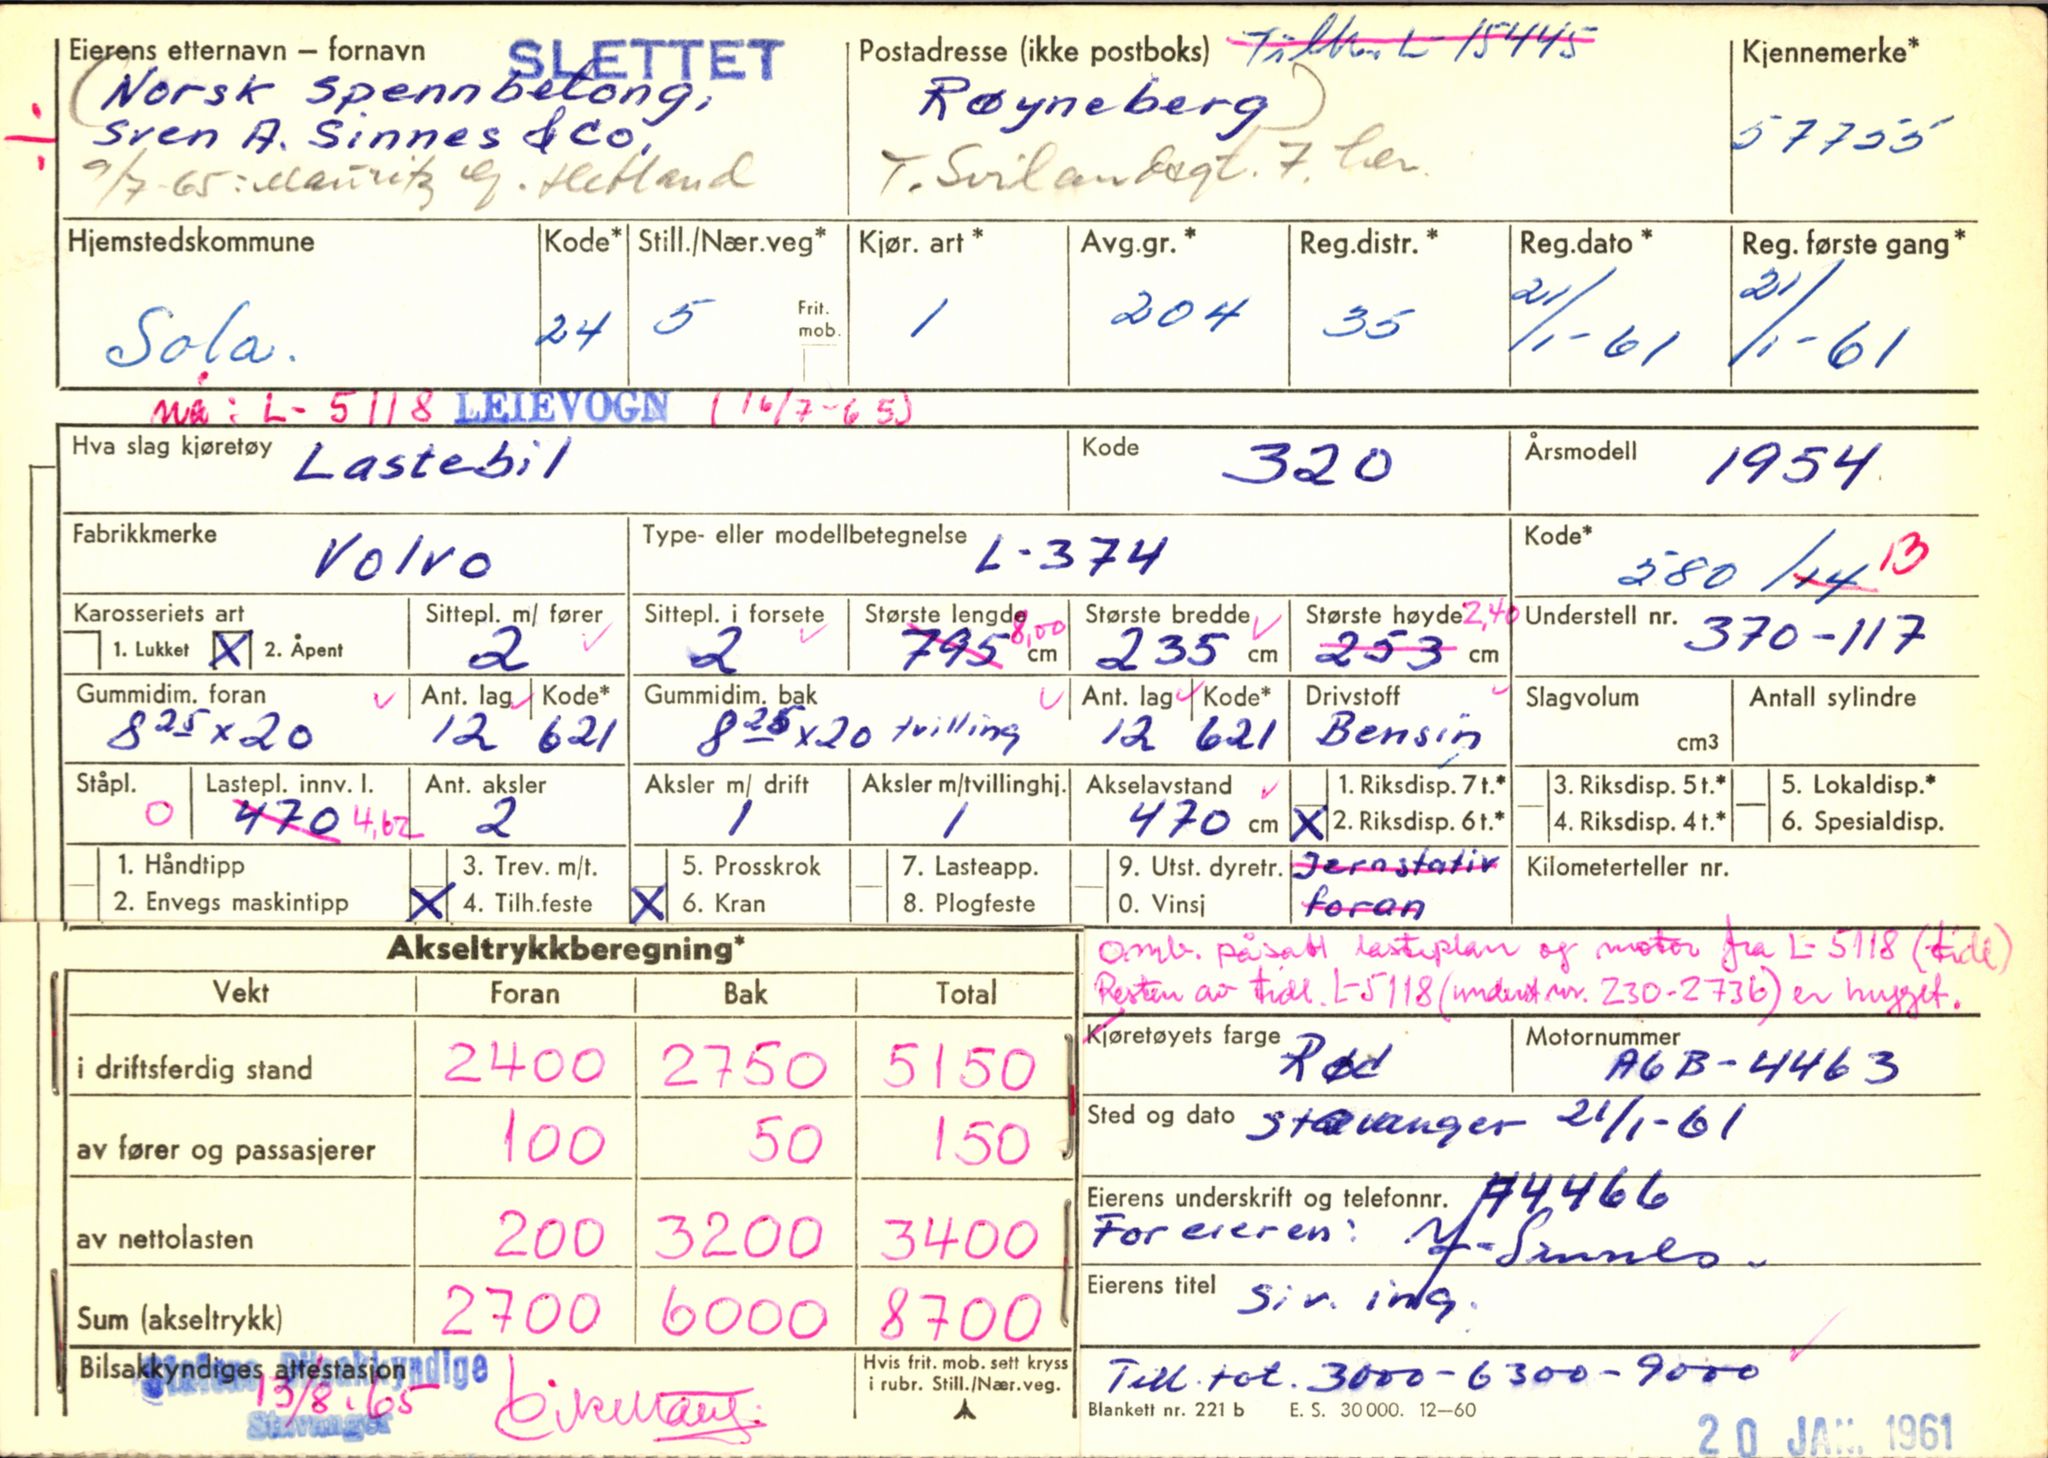 Eierens etternavn – fornavn SLETTET
(Norsk Spennbetong,
Sven A. Sinnes & Co.
9/7-65: Mauritz G. Hetland
Postadresse (ikke postboks) L-15445
Røyneberg)
T. Svilandsgt. 7, her.
Kjennemerke*
57755
Hjemstedskommune
Sola.
Kode*
24
Still./Nær.veg*
5
Frit.
mob.
Kjør. art*
1
Avg.gr.*
204
Reg.distr.*
35
Reg.dato*
21/1-61
Reg. første gang*
21/1-61
nå: L-5118 LEIEVOGN (16/7-65)
Hva slag kjøretøy Lastebil
Kode 320
Årsmodell 1954
Fabrikkmerke Volvo
Type- eller modellbetegnelse L-374
Kode*
580/14 13
Karosseriets art
1. Lukket X 2. Åpent
Sittepl. m/ fører
2
Sittepl. i forsete
2
Største lengde
795 8,00 cm
Største bredde
235 cm
Største høyde 2,40
253 cm
Understell nr.
370-117
Gummidim. foran
8 25 x 20
Ant. lag
12
Kode*
621
Gummidim. bak
8 25 x 20 tvilling
Ant. lag
12
Kode*
621
Drivstoff
Bensin
Slagvolum
cm3
Antall sylindre
Ståpl.
0
Lastepl. innv. l.
470 4,62
Ant. aksler
2
Aksler m/ drift
1
Aksler m/tvillinghj.
1
Akselavstand
470 cm
1. Riksdisp. 7 t.*
X 2. Riksdisp. 6 t.*
3. Riksdisp. 5 t.*
4. Riksdisp. 4 t.*
5. Lokaldisp.*
6. Spesialdisp.
1. Håndtipp
2. Envegs maskintipp
3. Trev. m/t.
X 4. Tilh.feste
5. Prosskrok
X 6. Kran
7. Lasteapp.
8. Plogfeste
9. Utst. dyretr.
0. Vinsj
Jernstativ
foran
Kilometerteller nr.
Akseltrykkberegning*
Vekt Foran Bak Total
i driftsferdig stand 2400 2750 5150
av fører og passasjerer 100 50 150
av nettolasten 200 3200 3400
Sum (akseltrykk) 2700 6000 8700
Bilsakkyndiges attestasjon
Statens Bilsakkyndige
13/8.65
Stavanger
Hvis frit. mob. sett kryss
i rubr. Still./Nær.veg.
Omb. påsatt lasteplan og motor fra L-5118 (tidl)
Resten av tidl. L-5118 (underst.nr. 230-2736) er hugget.
Kjøretøyets farge Rød
Motornummer
A6B-4463
Sted og dato Stavanger 21/1-61
Eierens underskrift og telefonnr. 74466
For eieren: Sinnes
Eierens titel siv. ing.
Till. tot. 3000-6300-9000
Blankett nr. 221 b E. S. 30 000. 12—60
20 JAN. 1961